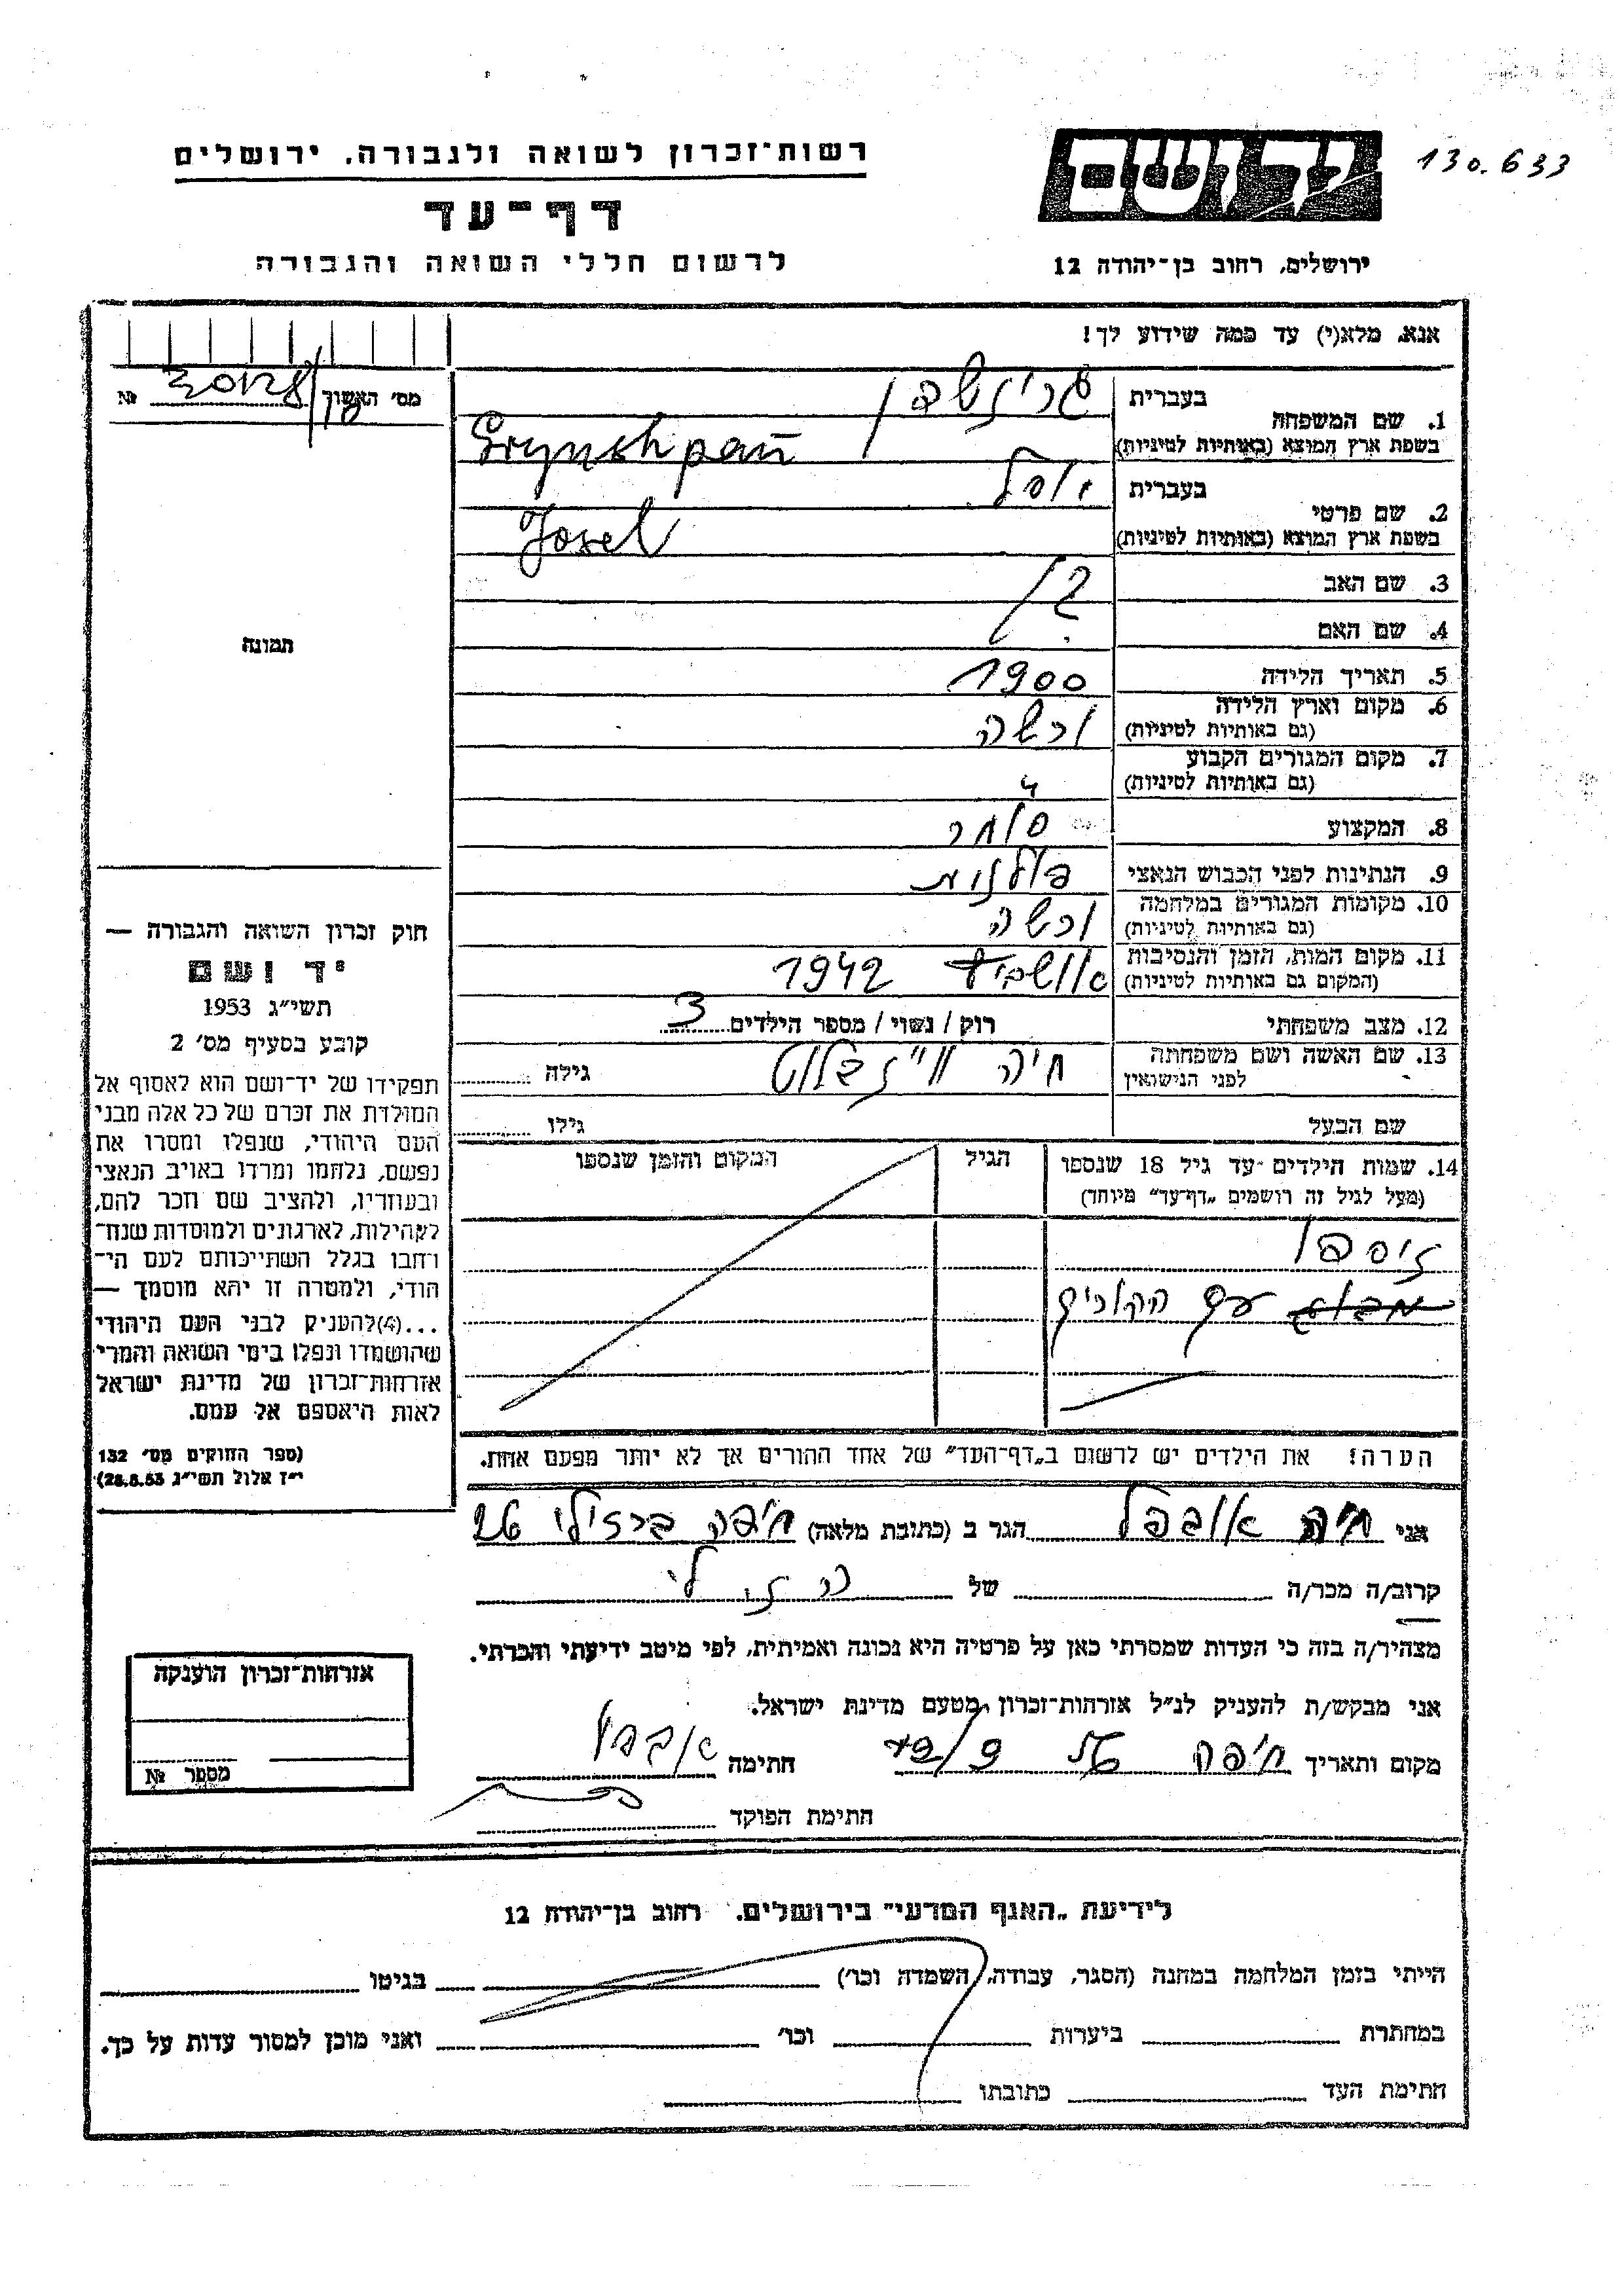 130.633
יד ושם
רשות־זכרון לשואה ולגבורה, ירושלים
דף־עד
לרשום חללי השואה והגבורה
ירושלים, רחוב בן־יהודה 12
אנא, מלא(י) עד כמה שידוע לך!
מס׳ האשוך № 30128
1. שם המשפחה
בעברית גרינשפן
בשפת ארץ המוצא (באותיות לטיניות) Grynshpan
2. שם פרטי
בעברית יוסל
בשפת ארץ המוצא (באותיות לטיניות) Josel
3. שם האב
4. שם האם
תמונה
5. תאריך הלידה 1900
6. מקום וארץ הלידה
(גם באותיות לטיניות) ורשה
7. מקום המגורים הקבוע
(גם באותיות לטיניות) "
8. המקצוע סוחר
9. הנתינות לפני הכבוש הנאצי פולנית
10. מקומות המגורים במלחמה
(גם באותיות לטיניות) ורשה
11. מקום המות, הזמן והנסיבות
(המקום גם באותיות לטיניות) אושביץ 1942
12. מצב משפחתי רוק / נשוי / מספר הילדים 3
13. שם האשה ושם משפחתה
לפני הנישואין חיה גילה
שם הבעל גילו
14. שמות הילדים עד גיל 18 שנספו הגיל המקום והזמן שנספו
(מעל לגיל זה רושמים „דף־עד״ מיוחד)
ניספו
עם ההורים
הערה! את הילדים יש לרשום ב„דף־העד״ של אחד ההורים אך לא יותר מפעם אחת.
חוק זכרון השואה והגבורה —
יד ושם
תשי״ג 1953
קובע בסעיף מס׳ 2
תפקידו של יד־ושם הוא לאסוף אל
המולדת את זכרם של כל אלה מבני
העם היהודי, שנפלו ומסרו את
נפשם, נלחמו ומרדו באויב הנאצי
ובעוזריו, ולהציב שם וזכר להם,
לקהילות, לארגונים ולמוסדות שנח־
רבו בגלל השתייכותם לעם הי־
הודי, ולמטרה זו יהא מוסמך —
...(4) להעניק לבני העם היהודי
שהושמדו ונפלו בימי השואה והמרי
אזרחות־זכרון של מדינת ישראל
לאות היאספם אל עמם.
(ספר החוקים מס׳ 132
י״ז אלול תשי״ג 28.8.53)
אני חיה הגר ב (כתובת מלאה) חיפה ברזילי 26
קרוב/ה מכר/ה של
מצהיר/ה בזה כי העדות שמסרתי כאן על פרטיה היא נכונה ואמיתית, לפי מיטב ידיעתי והכרתי.
אני מבקש/ת להעניק לנ״ל אזרחות־זכרון מטעם מדינת ישראל.
מקום ותאריך חיפה חתימה
חתימת הפוקד
אזרחות־זכרון הוענקה
מספר №
לידיעת „האגף המדעי״ בירושלים, רחוב בן־יהודה 12
הייתי בזמן המלחמה במחנה (הסגר, עבודה, השמדה וכו׳) בגיטו
במחתרת ביערות וכו׳ ואני מוכן למסור עדות על כך.
חתימת העד כתובתו